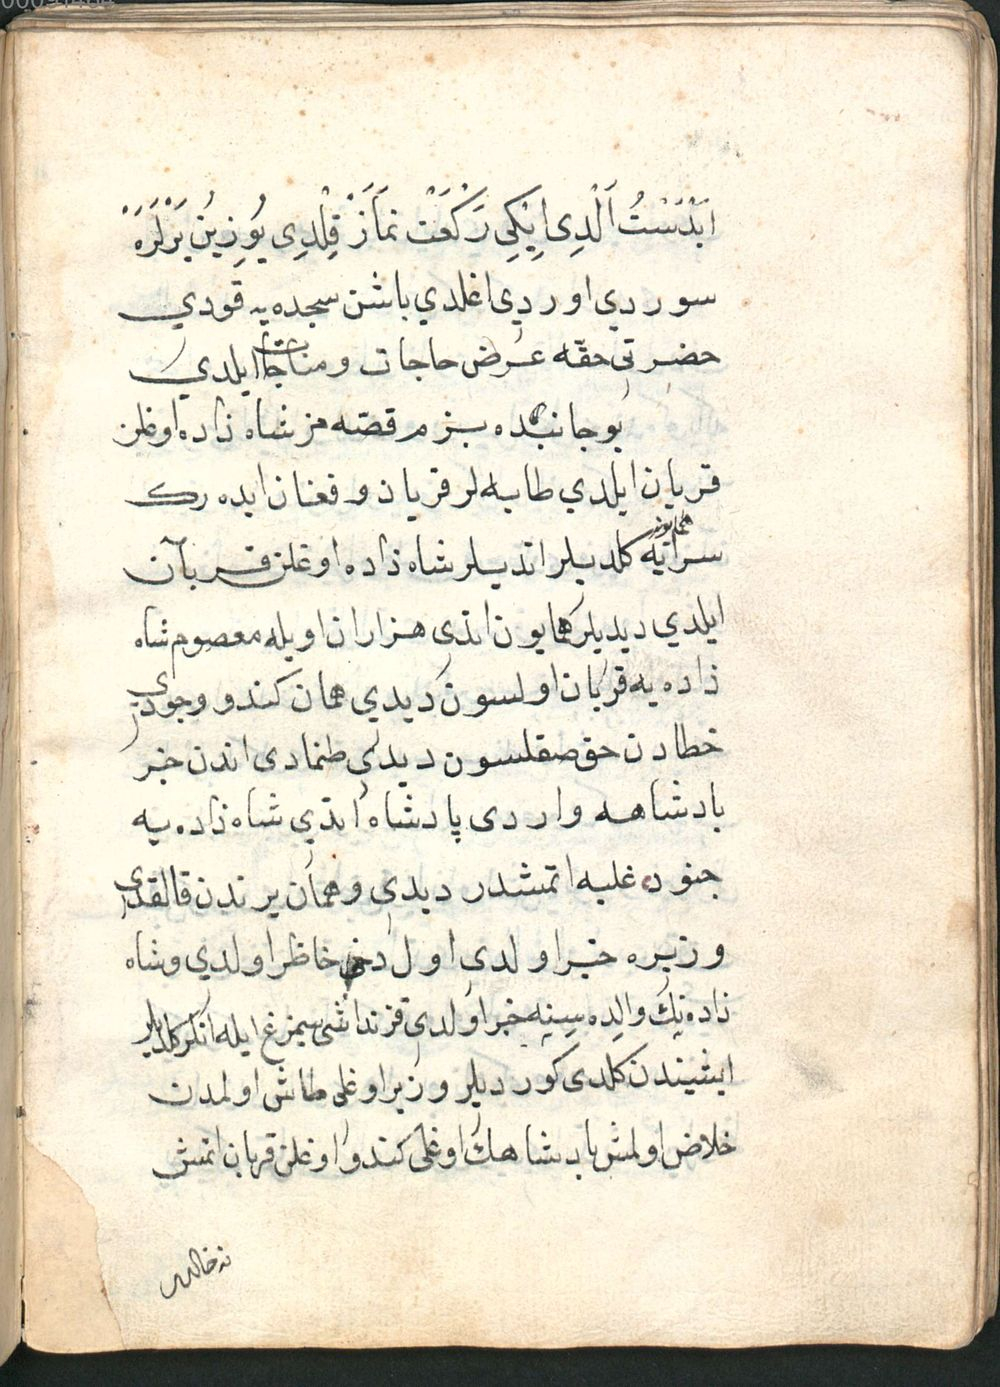 اَبْدَسْتُ اَلْدِی اِیْکِی رَکْعَتْ نَمَازْ قِلْدِی یُوزِینْ یَرْلَرَهْ
سوردی اوردی اغلدي باشن سجده‌یه قودي
حضرتی حقّه عرض حاجات و مناجات ایلدي
بو جانبده بزم قصّه مز شاه زاده اوغلن
قربان ایلدي طایه‌لر فریاد و فغان ایده رك
سرایه همایونه کلدیلر اتدیلر شاه زاده اوغلن قربان
ایلدي دیدیلر همایون اتدی هزاران اویله معصوم شاه
زاده‌یه قربان اولسون دیدي همان کندو وجودی
خطادن حق صقلسون دیدی طنمادی اندن خبر
پادشاهه واردی پادشاه اتدي شاه زاده‌یه
جنون غلبه اتمشدر دیدی و همان یرندن قالقدی
وزیره خبر اولدی اول دخی حاظر اولدي و شاه
زاده‌نك والده سِینه خبر اولدی قزنداشی سیمرغ ایله انلر کلدیلر
ایشیندن کلدی کوردیلر وزیر اوغلی طاش اولمدن
خلاص اولمش پادشاهك اوغلی کندو اوغلن قربان اتمش